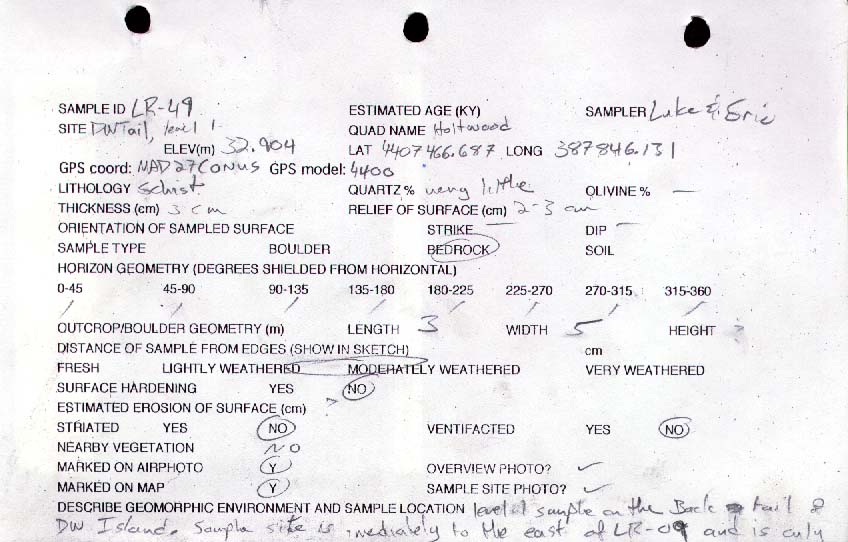 SAMPLE ID LR-49 ESTIMATED AGE (KY) SAMPLER Luke & Eric
SITE DWTail, level 1 QUAD NAME Holtwood
ELEV(m) 32.904 LAT 4407466.687 LONG 387846.131
GPS coord: NAD27CONUS GPS model: 4400
LITHOLOGY Schist QUARTZ % very little OLIVINE % —
THICKNESS (cm) 3 cm RELIEF OF SURFACE (cm) 2-3 cm
ORIENTATION OF SAMPLED SURFACE STRIKE — DIP —
SAMPLE TYPE BOULDER BEDROCK SOIL
HORIZON GEOMETRY (DEGREES SHIELDED FROM HORIZONTAL)
0-45 45-90 90-135 135-180 180-225 225-270 270-315 315-360
/ / / / / / / /
OUTCROP/BOULDER GEOMETRY (m) LENGTH 3 WIDTH 5 HEIGHT
DISTANCE OF SAMPLE FROM EDGES (SHOW IN SKETCH) cm
FRESH LIGHTLY WEATHERED MODERATELY WEATHERED VERY WEATHERED
SURFACE HARDENING YES NO
ESTIMATED EROSION OF SURFACE (cm)
STRIATED YES NO VENTIFACTED YES NO
NEARBY VEGETATION NO
MARKED ON AIRPHOTO Y OVERVIEW PHOTO? ✓
MARKED ON MAP Y SAMPLE SITE PHOTO? ✓
DESCRIBE GEOMORPHIC ENVIRONMENT AND SAMPLE LOCATION level 1 sample on the Back tail of
DW Island. Sample site is imediately to the east of LR-09 and is only